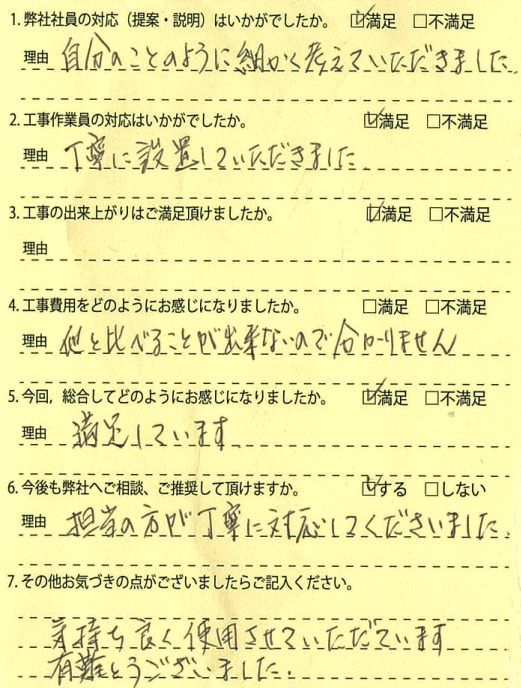 1. 弊社社員の対応（提案・説明）はいかがでしたか。 ☑満足 □不満足
理由 自分のことのように細かく考えていただきました。
2. 工事作業員の対応はいかがでしたか。 ☑満足 □不満足
理由 丁寧に設置していただきました
3. 工事の出来上がりはご満足頂けましたか。 ☑満足 □不満足
理由
4. 工事費用をどのようにお感じになりましたか。 □満足 □不満足
理由 他と比べることが出来ないので分かりません
5. 今回，総合してどのようにお感じになりましたか。 ☑満足 □不満足
理由 満足しています
6. 今後も弊社へご相談、ご推奨して頂けますか。 ☑する □しない
理由 担当の方が丁寧に対応してくださいました。
7. その他お気づきの点がございましたらご記入ください。
気持ち良く使用させていただています
有難とうございました。